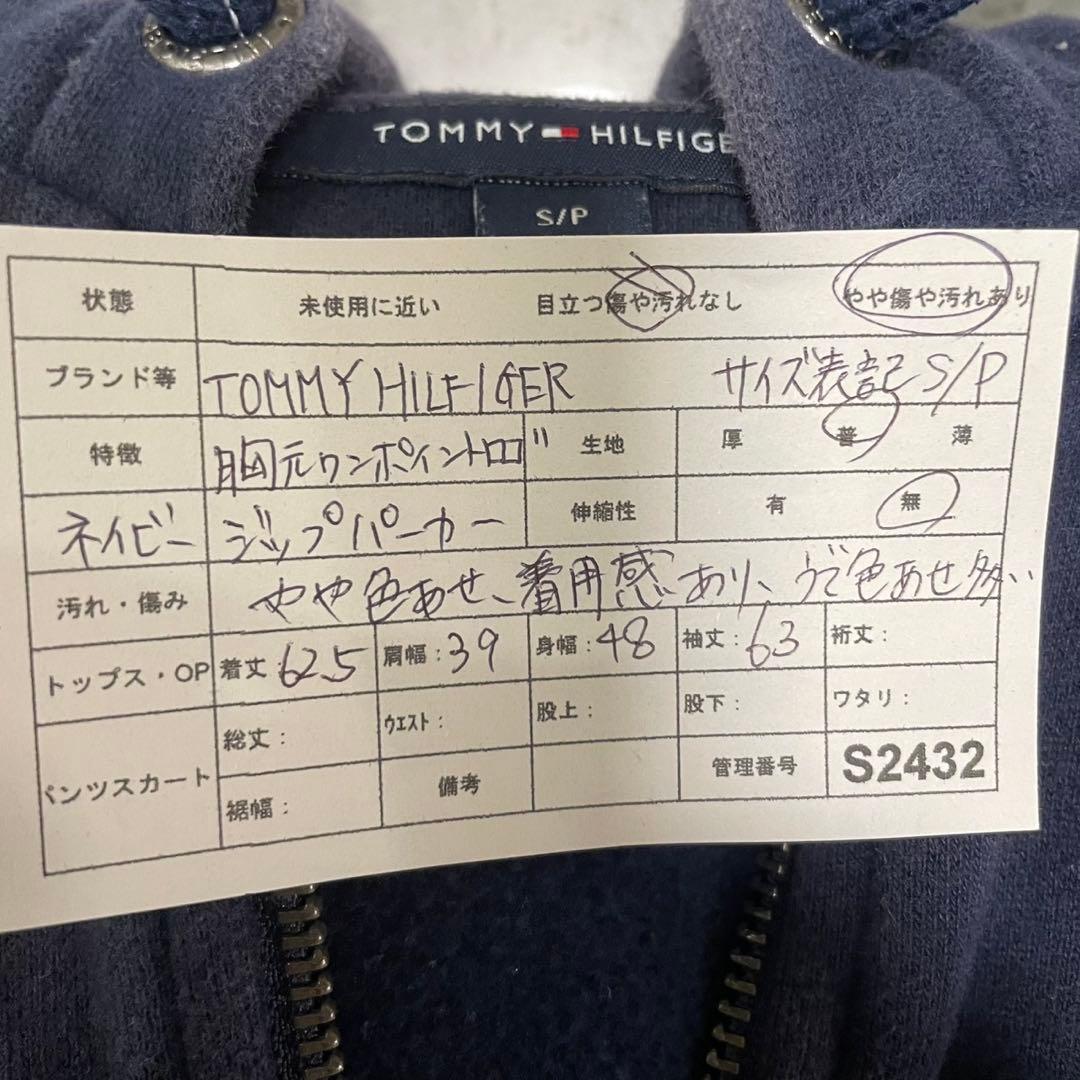 TOMMY HILFIGE
S/P
状態 未使用に近い 目立つ傷や汚れなし やや傷や汚れあり
ブランド等 TOMMY HILFIGER サイズ表記 S/P
特徴 胸元ワンポイントロゴ 生地 厚 普 薄
ネイビー ジップパーカー 伸縮性 有 無
汚れ・傷み やや色あせ、着用感あり、うで色あせ多い
トップス・OP 着丈:62.5 肩幅:39 身幅:48 袖丈:63 裄丈:
パンツスカート 総丈: ウエスト: 股上: 股下: ワタリ:
裾幅: 備考 管理番号 S2432